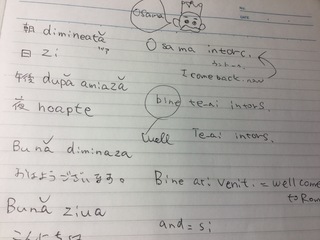 Osama
朝 dimineață
日 zi
午後 după amiază
夜 noapte
Bună diminaza
おはようございます。
Bună ziua
こんにちは
Osama intors.
I come back. now
bine te-ai intors.
well Te-ai intors.
Bine ati venit! = well come
to Rom
and = si